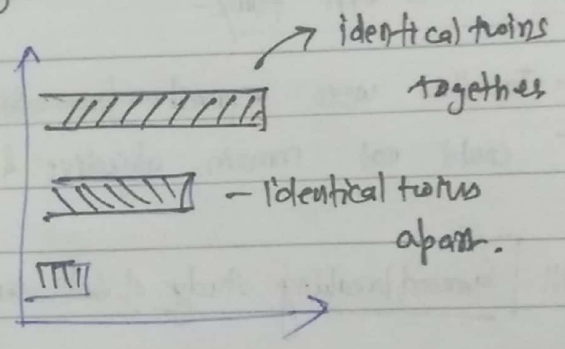 identical twins
together
- Identical twins
apart.